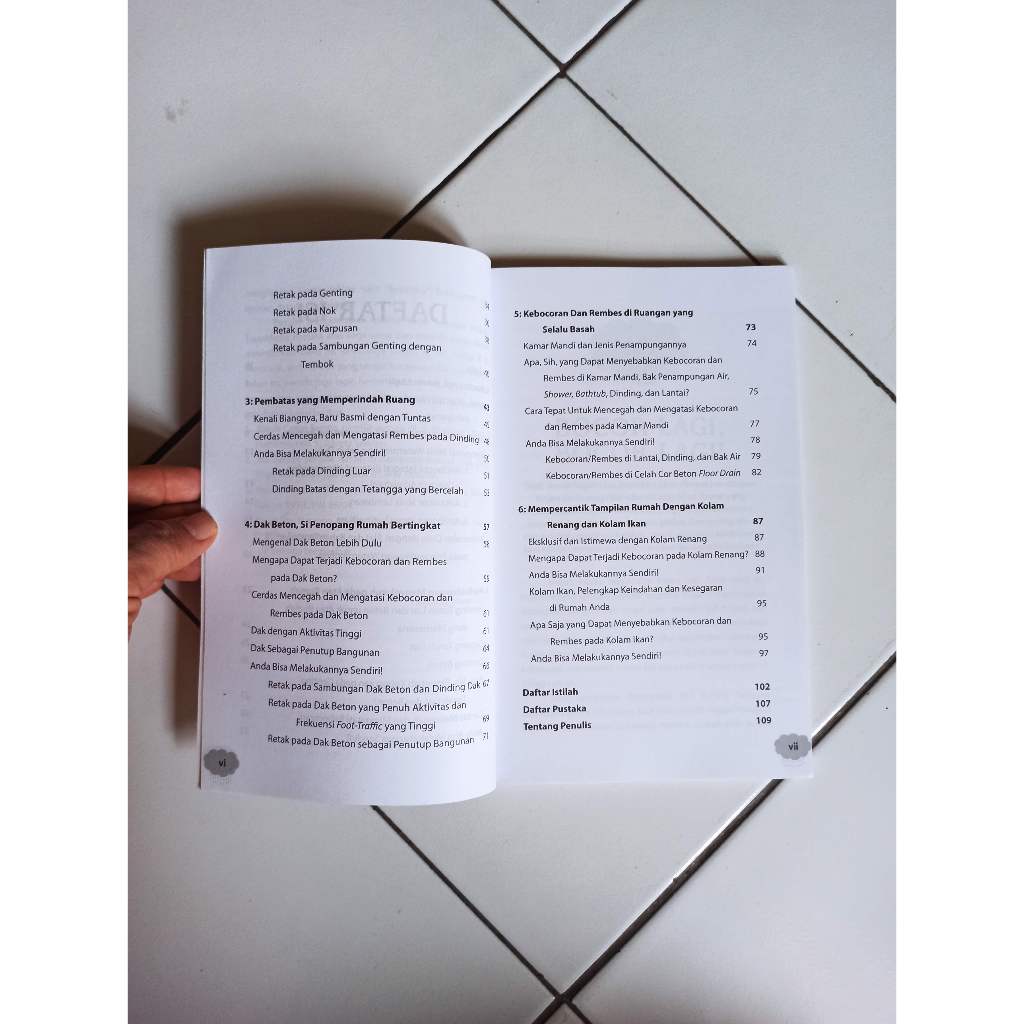 Retak pada Genting
Retak pada Nok
Retak pada Karpusan
Retak pada Sambungan Genting dengan
Tembok
3: Pembatas yang Memperindah Ruang
Kenali Biangnya, Baru Basmi dengan Tuntas
Cerdas Mencegah dan Mengatasi Rembes pada Dinding
Anda Bisa Melakukannya Sendiri!
Retak pada Dinding Luar
Dinding Batas dengan Tetangga yang Bercelah
4: Dak Beton, Si Penopang Rumah Bertingkat 57
Mengenal Dak Beton Lebih Dulu
Mengapa Dapat Terjadi Kebocoran dan Rembes
pada Dak Beton?
Cerdas Mencegah dan Mengatasi Kebocoran dan
Rembes pada Dak Beton
Dak dengan Aktivitas Tinggi
Dak Sebagai Penutup Bangunan 64
Anda Bisa Melakukannya Sendiri!
Retak pada Sambungan Dak Beton dan Dinding Dak 67
Retak pada Dak Beton yang Penuh Aktivitas dan
Frekuensi Foot-Traffic yang Tinggi 69
Retak pada Dak Beton sebagai Penutup Bangunan 71
vi
5: Kebocoran Dan Rembes di Ruangan yang
Selalu Basah 73
Kamar Mandi dan Jenis Penampungannya 74
Apa, Sih, yang Dapat Menyebabkan Kebocoran dan
Rembes di Kamar Mandi, Bak Penampungan Air,
Shower, Bathtub, Dinding, dan Lantai? 75
Cara Tepat Untuk Mencegah dan Mengatasi Kebocoran
dan Rembes pada Kamar Mandi 77
Anda Bisa Melakukannya Sendiri! 78
Kebocoran/Rembes di Lantai, Dinding, dan Bak Air 79
Kebocoran/Rembes di Celah Cor Beton Floor Drain 82
6: Mempercantik Tampilan Rumah Dengan Kolam
Renang dan Kolam Ikan 87
Eksklusif dan Istimewa dengan Kolam Renang 87
Mengapa Dapat Terjadi Kebocoran pada Kolam Renang? 88
Anda Bisa Melakukannya Sendiri! 91
Kolam Ikan, Pelengkap Keindahan dan Kesegaran
di Rumah Anda 95
Apa Saja yang Dapat Menyebabkan Kebocoran dan
Rembes pada Kolam Ikan? 95
Anda Bisa Melakukannya Sendiri! 97
Daftar Istilah 102
Daftar Pustaka 107
Tentang Penulis 109
vii